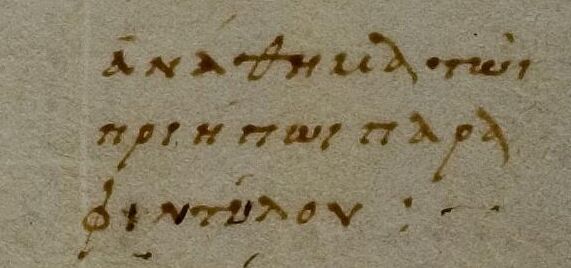 ἀνάθημα τῶι
πριηπωι παρα
φιντύλου :~